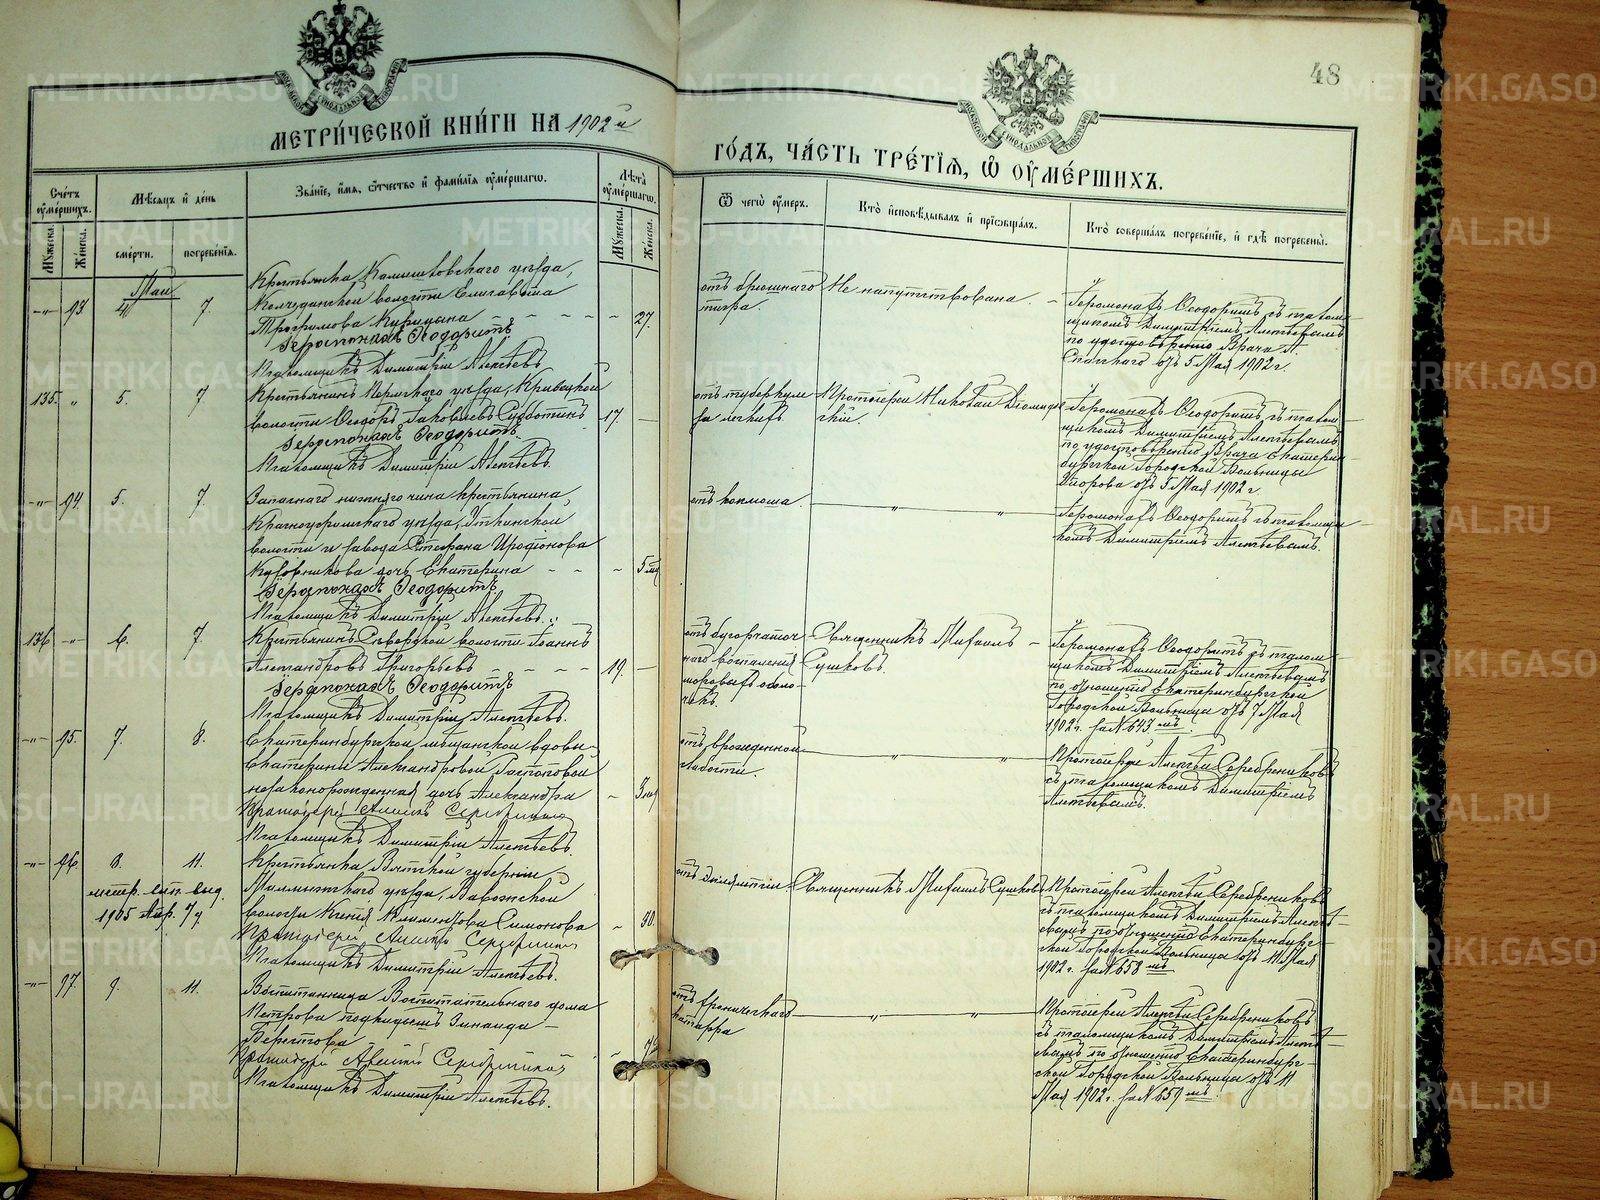 МЕТРИ́ЧЕСКОЙ КНИ́ГИ НА 1902 й
ГО́ДЪ, ЧА́СТЬ ТРЕ́ТІЯ, Ѡ ОУМЕ́РШИХЪ.
48
Сче́тъ оуме́ршихъ.
Мѣ́сяцъ и де́нь
Зва́ніе, и́мя, ѻ́тчество и фами́лія оуме́ршагѡ.
Лѣ́та оуме́ршагѡ.
Ѿ чегѡ̀ оу́меръ.
Кто̀ исповѣ́дывалъ и пріѡбща́лъ.
Кто̀ соверша́лъ погребе́ніе, и гдѣ̀ погребены̀.
Му́жеска.
Же́нска.
сме́рти.
погребе́нія.
Му́жеска.
Же́нска.
Май
93. 4 7
Крестьянка Камышловскаго уѣзда,
Колчеданской волости Елизавета
Трофимова Курицына 27.
Іеромонахъ Ѳеодоритъ
Псаломщикъ Димитрій Алексѣевъ
отъ брюшного
тифа.
Не напутствована.
Іеромонахъ Ѳеодоритъ съ псалом-
щикомъ Димитріемъ Алексѣевымъ
по удостовѣренію Врача
отъ 5 Мая 1902 г.
135. " 5. 7
Крестьянинъ Пермскаго уѣзда,
волости Ѳеодоръ Яковлевъ Субботинъ 17.
Іеромонахъ Ѳеодоритъ.
Псаломщикъ Димитрій Алексѣевъ.
отъ туберкуле
за легкихъ.
Протоіерей Николай
Іеромонахъ Ѳеодоритъ съ псалом-
щикомъ Димитріемъ Алексѣевымъ
по удостовѣренію Врача Екатерин-
бургской Городской Больницы
отъ 5 Мая 1902 г.
-"- 94. 5. 7.
Запаснаго нижняго чина крестьянина,
Красноуфимскаго уѣзда, Уткинской
волости и завода Стефана Иродіонова
дочь Екатерина 5 мѣс
Іеромонахъ Ѳеодоритъ
Псаломщикъ Димитрій Алексѣевъ.
отъ коклюша.
Іеромонахъ Ѳеодоритъ съ псаломщи-
комъ Димитріемъ Алексѣевымъ.
136 -"- 6. 7.
Крестьянинъ волости Іоаннъ
Александровъ Григорьевъ 19.
Іеромонахъ Ѳеодоритъ
Псаломщикъ Димитрій Алексѣевъ.
отъ бугорчаточ
наго воспаленія
мозговыхъ оболо-
чекъ.
Священникъ Михаилъ
Сушковъ.
Іеромонахъ Ѳеодоритъ съ псалом-
щикомъ Димитріемъ Алексѣевымъ
по отношенію Екатеринбургской
Городской Больницы отъ 7 Мая
1902 г. за № 643 мъ.
-"- 95. 7. 8.
Екатеринбургской мѣщанской вдовы
Екатерины Александровой
незаконорожденная дочь Александра 3
Протоіерей Алексѣй Серебренниковъ
Псаломщикъ Димитрій Алексѣевъ.
отъ врожденной
слабости.
Протоіерей Алексѣй Серебренниковъ
съ псаломщикомъ Димитріемъ
Алексѣевымъ.
-"- 96. 8. 11.
1905 Апр. 7 д
Крестьянка Вятской губерніи
Малмыжскаго уѣзда, Вавожской
волости Ксенія Климентова Симонова
Протоіерей Алексѣй Серебренниковъ
Псаломщикъ Димитрій Алексѣевъ.
Священникъ Михаилъ Сушковъ
Протоіерей Алексѣй Серебренниковъ
съ псаломщикомъ Димитріемъ Алексѣ-
евымъ по отношенію Екатеринбург-
ской Городской Больницы отъ 11 Мая
1902 г. за № 658 мъ
-"- 97. 9. 11.
Воспитанница Воспитательнаго дома
Петрова подкидышъ Зинаида
Берестова
Протоіерей Алексѣй Серебренниковъ
Псаломщикъ Димитрій Алексѣевъ.
отъ хроническаго
катарра
Протоіерей Алексѣй Серебренниковъ
съ псаломщикомъ Димитріемъ Алексѣ-
евымъ по отношенію Екатеринбург-
ской Городской Больницы отъ 11
Мая 1902 г. за № 659 мъ.
METRIKI.GASO-URAL.RU